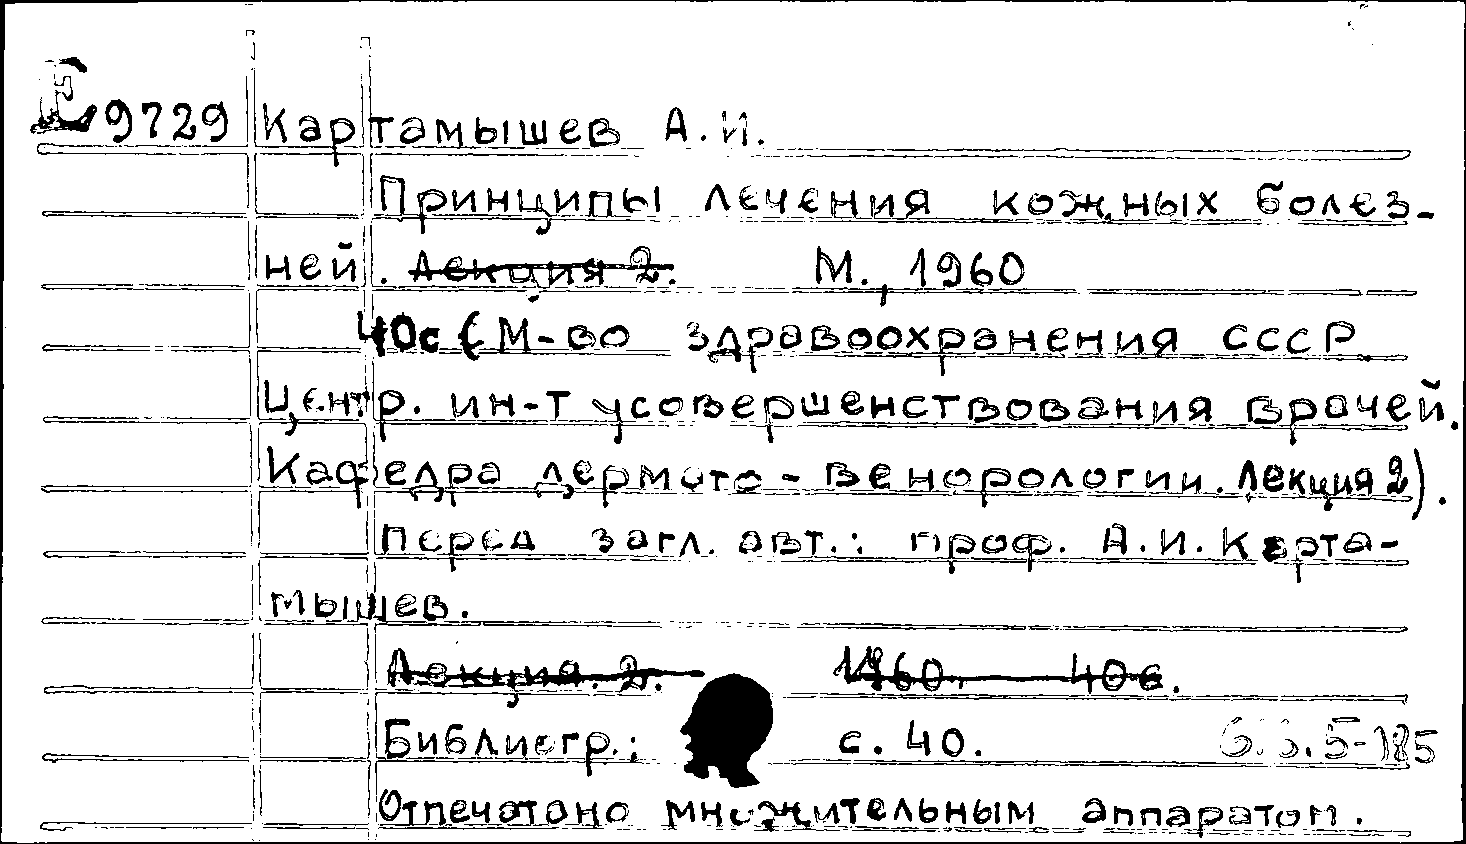 Е9729 Картамышев А.И.
Принципы лечения кожных болез-
ней. Лекция 2. М., 1960
40с (М-во здравоохранения СССР.
Центр. ин-т усовершенствования врачей.
Кафедра дермато-венорологии. Лекция 2).
Перед загл. авт.: проф. А.И. Карта-
мышев.
Лекция. 2. 1960. 40с.
Библиогр.: с. 40.
Отпечатано множительным аппаратом.